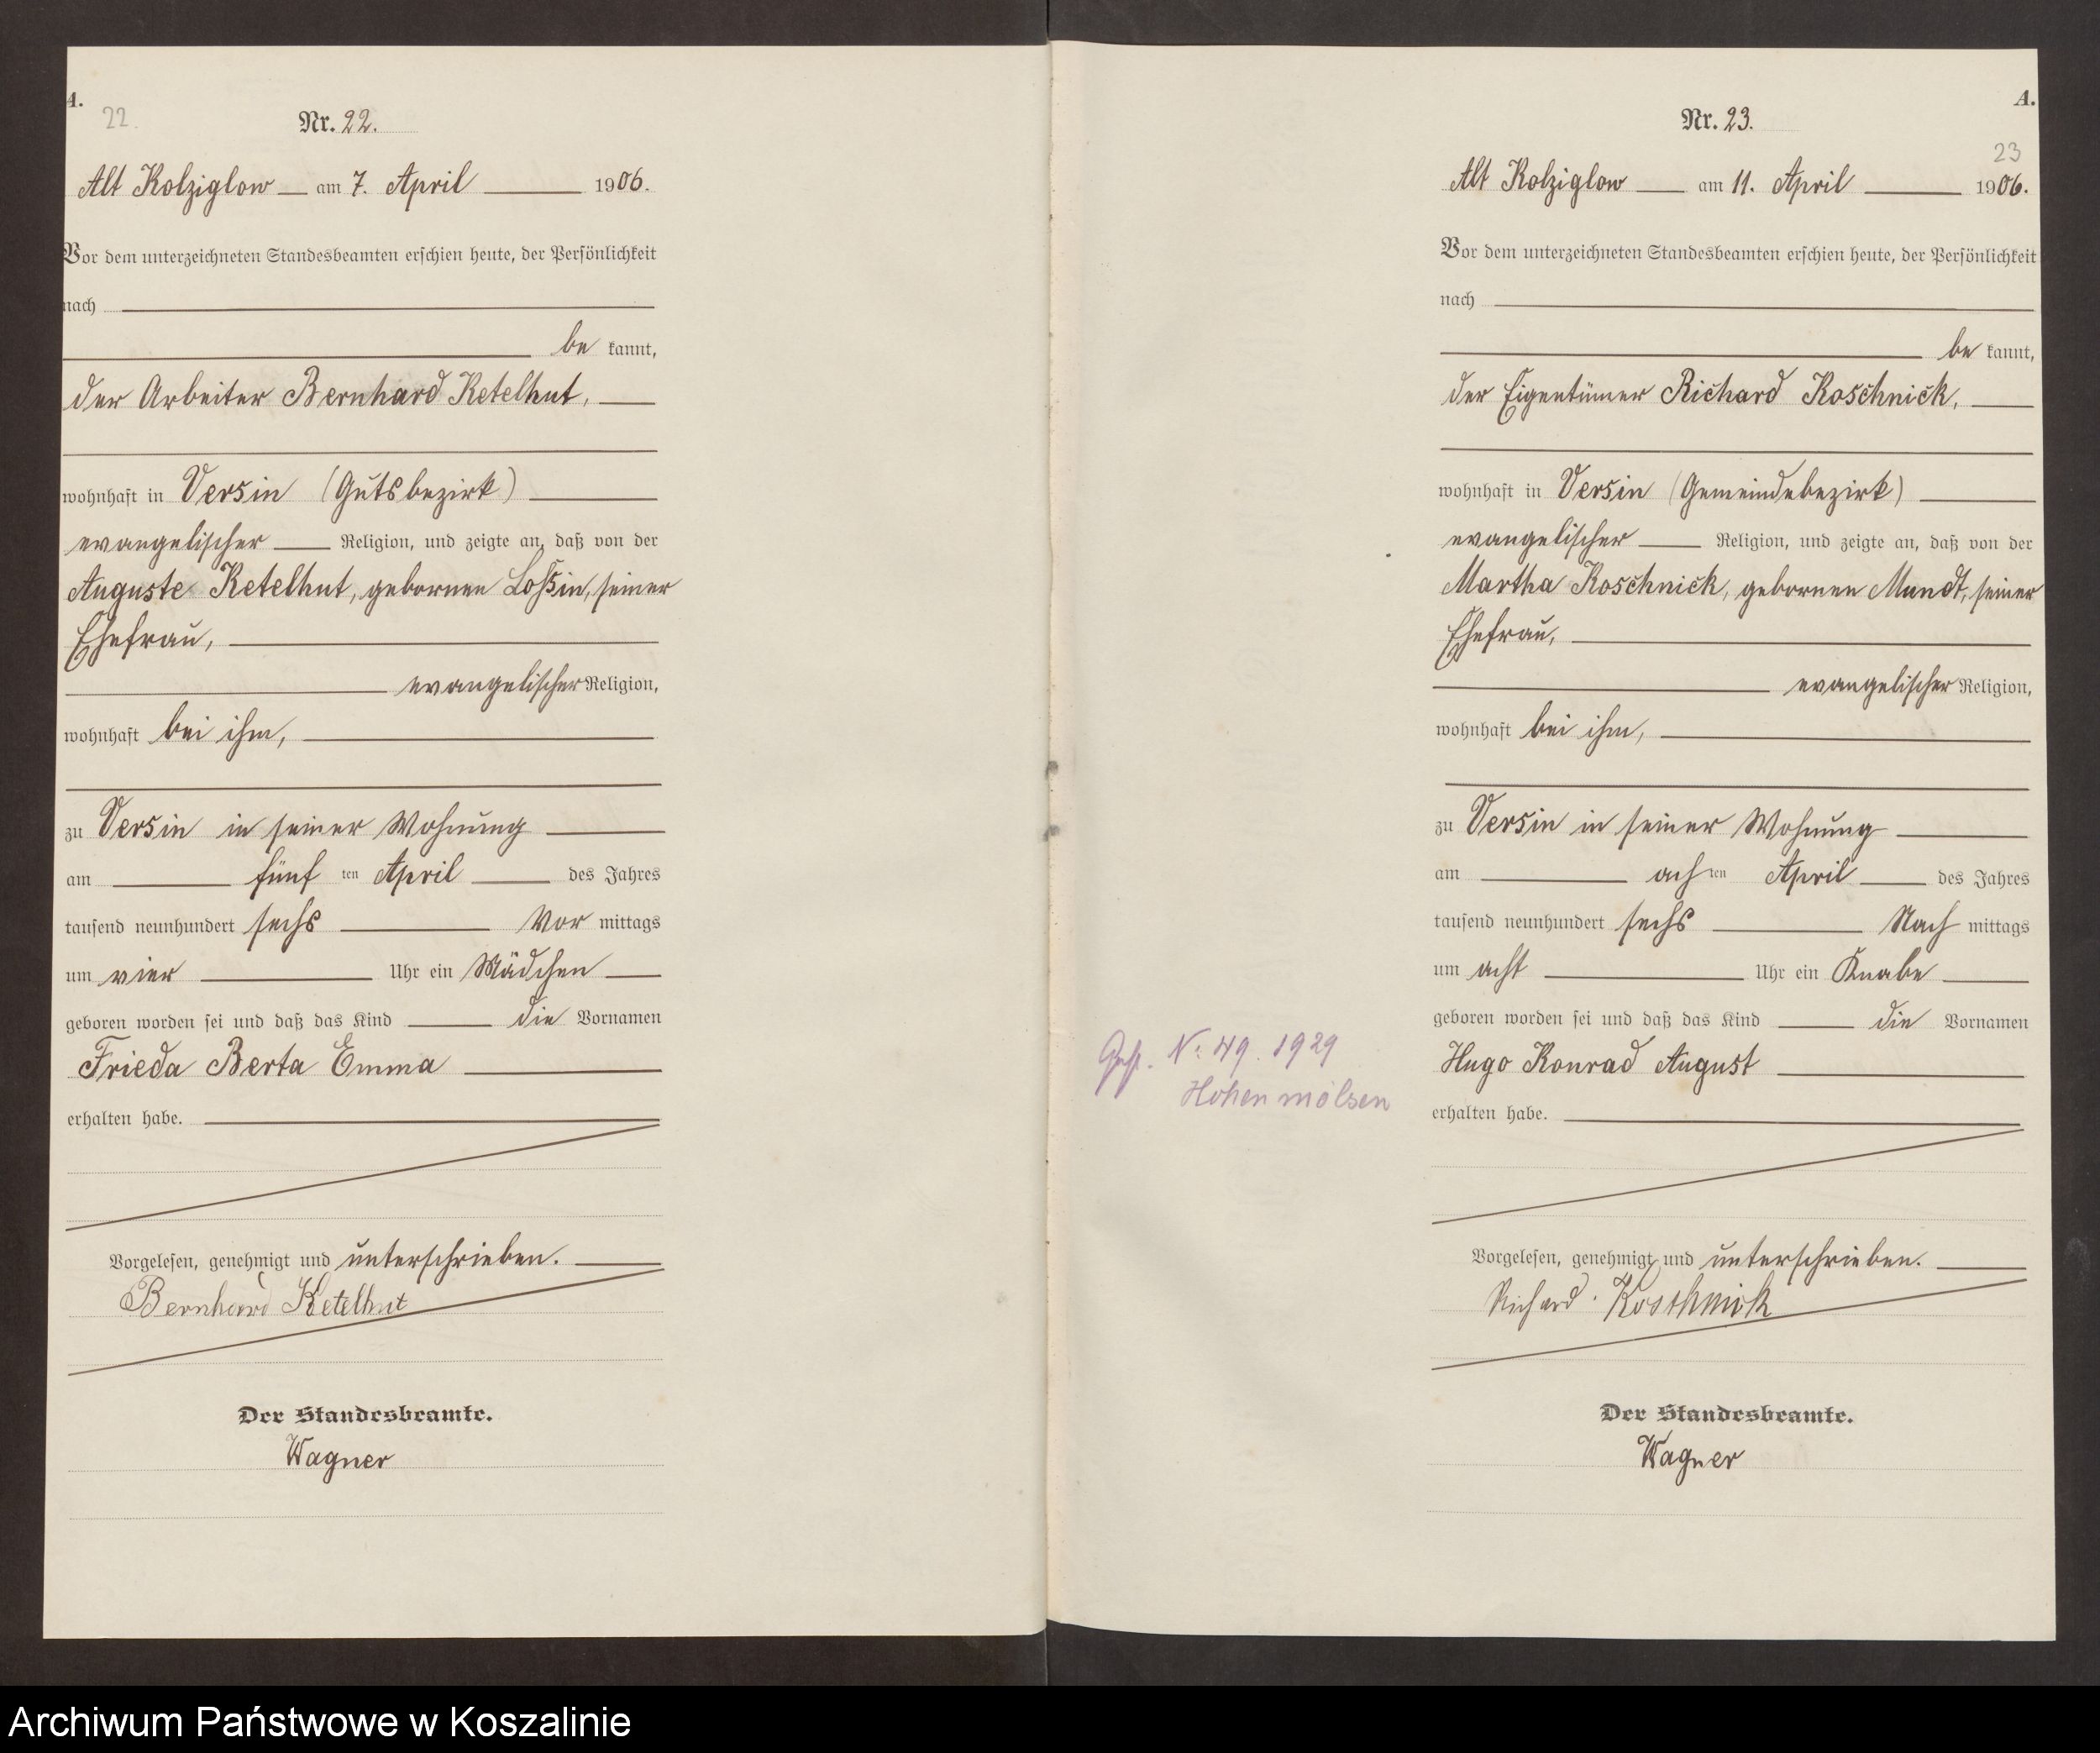 A.
22.
Nr. 22.
Alt Kolziglow am 7. April 1906.
Vor dem unterzeichneten Standesbeamten erschien heute, der Persönlichkeit
nach
be kannt,
der Arbeiter Bernhard Ketelhut,
wohnhaft in Versin (Gutsbezirk)
evangelischer Religion, und zeigte an, daß von der
Auguste Ketelhut, gebornen Loßin, seiner
Ehefrau,
evangelischer Religion,
wohnhaft bei ihm,
zu Versin in seiner Wohnung
am fünf ten April des Jahres
tausend neunhundert sechs Vor mittags
um vier Uhr ein Mädchen
geboren worden sei und daß das Kind die Vornamen
Frieda Berta Emma
erhalten habe.
Vorgelesen, genehmigt und unterschrieben.
Bernhard Ketelhut
Der Standesbeamte.
Wagner
A.
Nr. 23.
23
Alt Kolziglow am 11. April 1906.
Vor dem unterzeichneten Standesbeamten erschien heute, der Persönlichkeit
nach
be kannt,
der Eigentümer Richard Koschnick,
wohnhaft in Versin (Gemeindebezirk)
evangelischer Religion, und zeigte an, daß von der
Martha Koschnick, gebornen Mundt, seiner
Ehefrau,
evangelischer Religion,
wohnhaft bei ihm,
zu Versin in seiner Wohnung
am ach ten April des Jahres
tausend neunhundert sechs Nach mittags
um acht Uhr ein Knabe
geboren worden sei und daß das Kind die Vornamen
Hugo Konrad August
erhalten habe.
Vorgelesen, genehmigt und unterschrieben.
Richard Koschnick
Der Standesbeamte.
Wagner
N: 49. 1929
Hohenmölsen
Archiwum Państwowe w Koszalinie